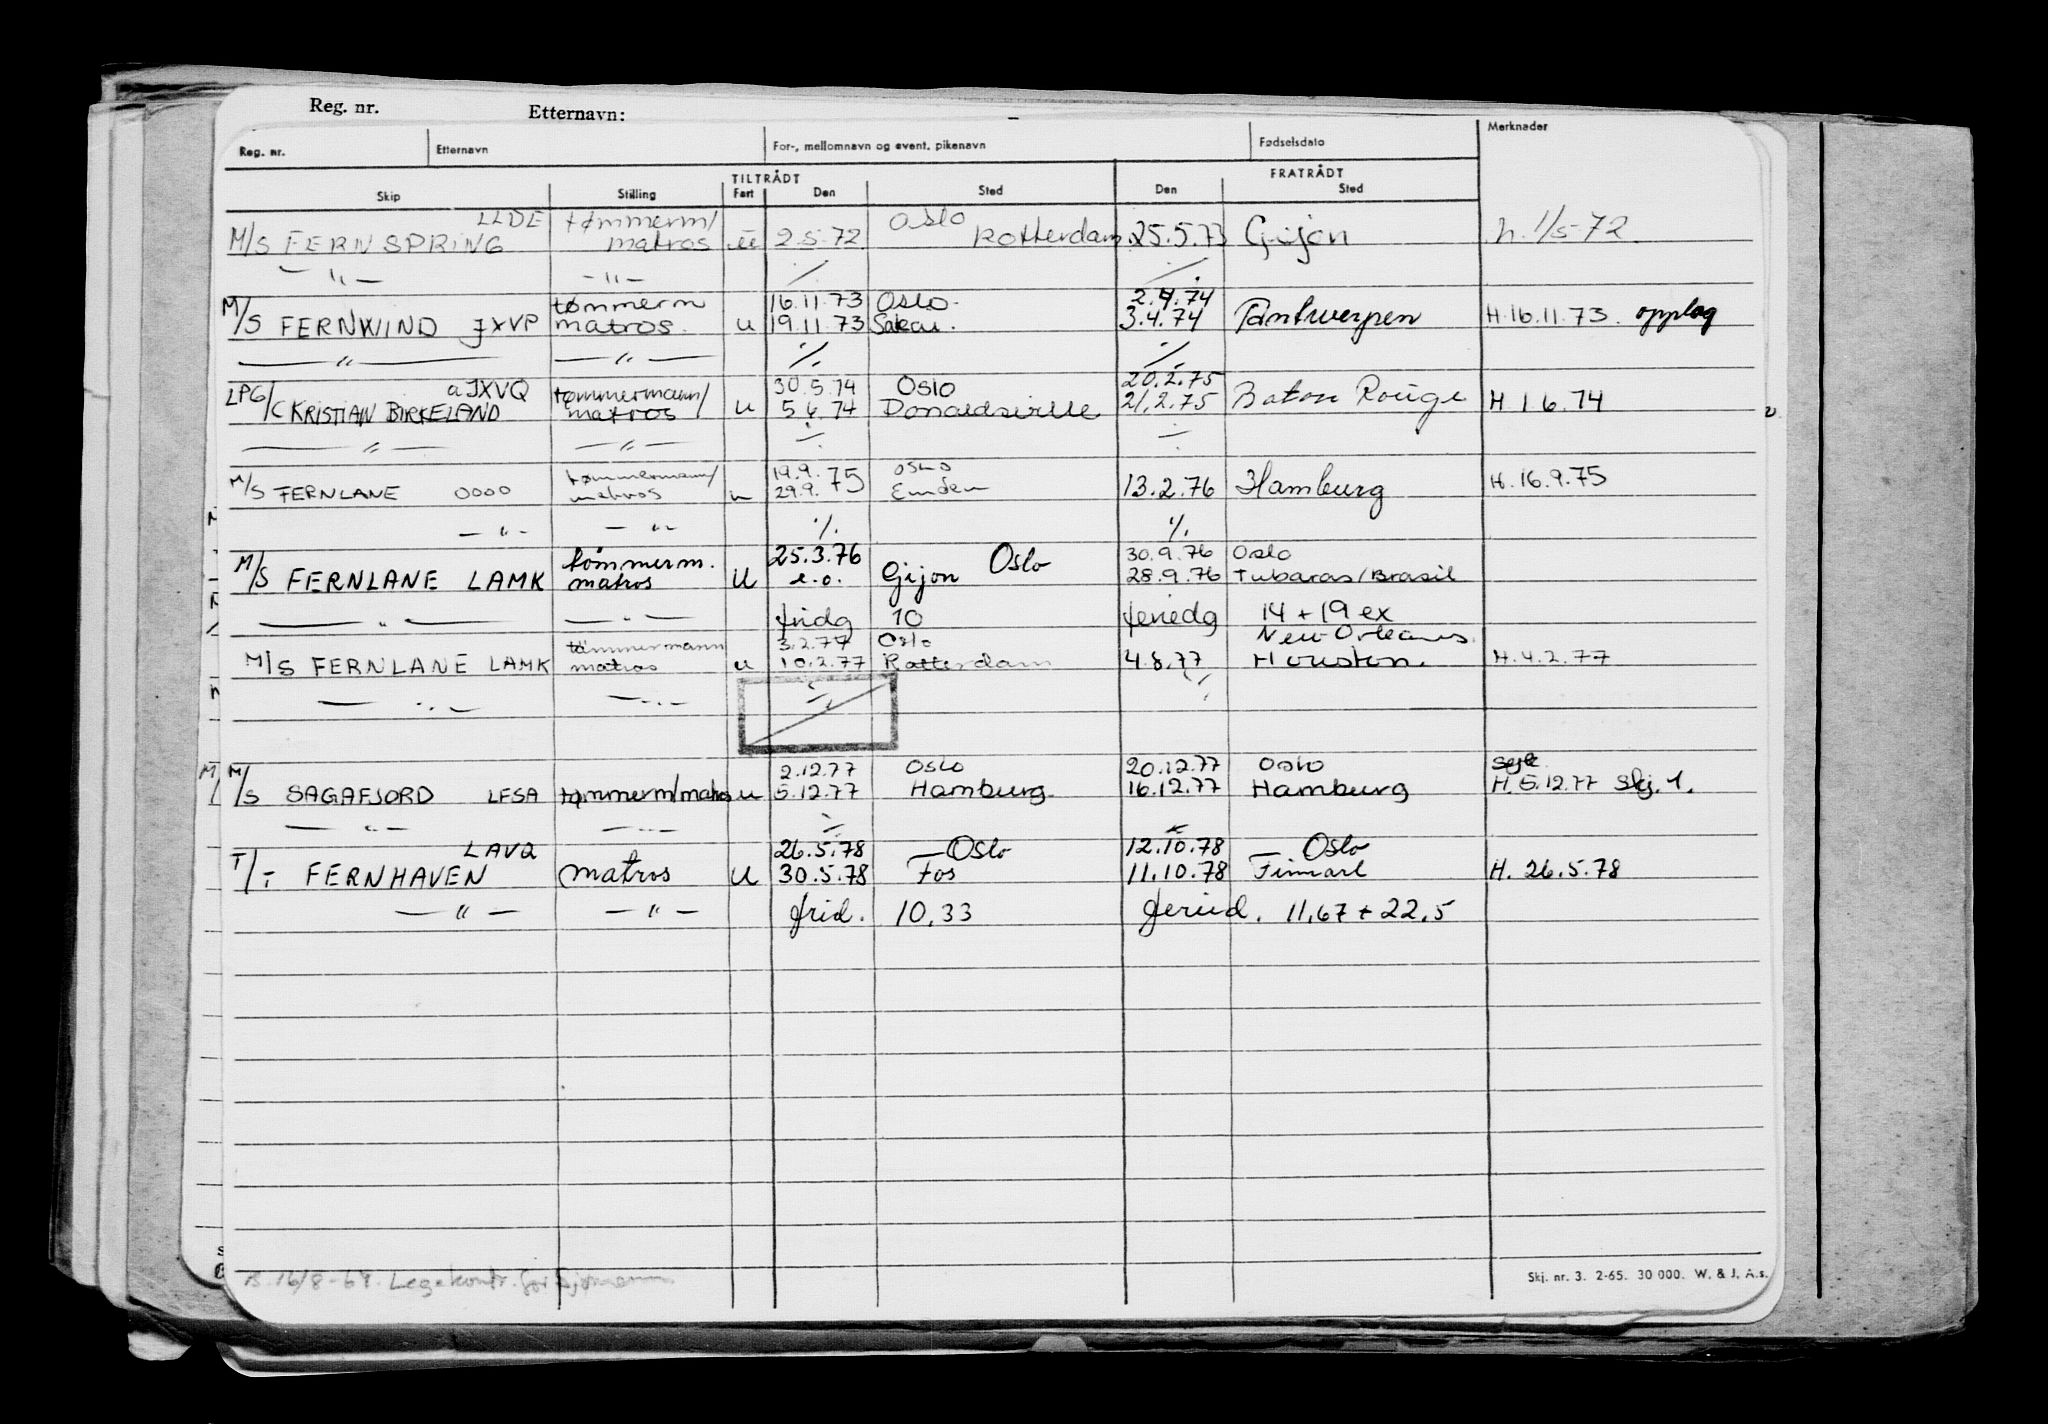 Reg. nr. Etternavn:
Reg. nr. Etternavn For-, mellomnavn og event. pikenavn Fødselsdato Merknader
TILTRÅDT FRATRÅDT
Skip Stilling Fart Den Sted Den Sted
LLDE tømmerm/ Oslo
M/S FERNSPRING matros u 2.5.72 Rotterdam 25.5.73 Gijon h. 1/5-72
— " — — " — ٪ ٪
tømmerm 16.11.73 Oslo 2.4.74
M/S FERNWIND JXVP matros u 19.11.73 Sakai. 3.4.74 Antwerpen H.16.11.73. opplag
— " — — " — ٪ ٪
aJXVQ tømmermann/ 30.5.74 Oslo 20.2.75
LPG/C KRISTIAN BIRKELAND matros u 5.6.74 Donaldsville 21.2.75 Baton Rouge H 1 6.74
— " — — " —
tømmermann/ 19.9. Oslo
M/S FERNLANE OOOO matros u 29.9. 75 Emden 13.2.76 Hamburg H.16.9.75
— " — — " — ٪. ٪.
tømmerm. 25.3.76 Oslo 30.9.76 Oslo
M/S FERNLANE LAMK matros u e.o. Gijon 28.9.76 Tubarao/Brasil
— " — — " — fridg 10 feriedg 14 + 19 ex
tömmermann 3.2.77 Oslo New Orleans
M/S FERNLANE LAMK matros u 10.2.77 Rotterdam 4.8.77 Houston. H.4.2.77
— " — — " — ٪ ٪
2.12.77 Oslo 20.12.77 Oslo
M/S SAGAFJORD LFSA tømmerm/matros u 5.12.77 Hamburg 16.12.77 Hamburg H.5.12.77 Skj.1.
— " — — " — ٪
LAVQ 26.5.78 — Oslo 12.10.78 — Oslo
T/T FERNHAVEN matros u 30.5.78 Fos 11.10.78 Finnart H. 26.5.78
— " — — " — frid. 10,33 feried. 11,67 + 22,5
16/8-69. Legekontr. for sjømenn
Skj. nr. 3. 2-65. 30 000. W. & J. A.s.